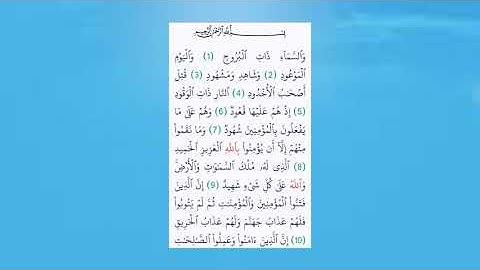 بِسْمِ اللَّهِ الرَّحْمَٰنِ الرَّحِيمِ
وَالسَّمَآءِ ذَاتِ الْبُرُوجِ (1) وَالْيَوْمِ
الْمَوْعُودِ (2) وَشَاهِدٍ وَمَشْهُودٍ (3) قُتِلَ
أَصْحَٰبُ الْأُخْدُودِ (4) النَّارِ ذَاتِ الْوَقُودِ
(5) إِذْ هُمْ عَلَيْهَا قُعُودٌ (6) وَهُمْ عَلَىٰ مَا
يَفْعَلُونَ بِالْمُؤْمِنِينَ شُهُودٌ (7) وَمَا نَقَمُوا۟
مِنْهُمْ إِلَّآ أَن يُؤْمِنُوا۟ بِاللَّهِ الْعَزِيزِ الْحَمِيدِ
(8) الَّذِى لَهُۥ مُلْكُ السَّمَٰوَٰتِ وَالْأَرْضِ ۚ
وَاللَّهُ عَلَىٰ كُلِّ شَىْءٍ شَهِيدٌ (9) إِنَّ الَّذِينَ
فَتَنُوا۟ الْمُؤْمِنِينَ وَالْمُؤْمِنَٰتِ ثُمَّ لَمْ يَتُوبُوا۟
فَلَهُمْ عَذَابُ جَهَنَّمَ وَلَهُمْ عَذَابُ الْحَرِيقِ
(10) إِنَّ الَّذِينَ ءَامَنُوا۟ وَعَمِلُوا۟ الصَّٰلِحَٰتِ